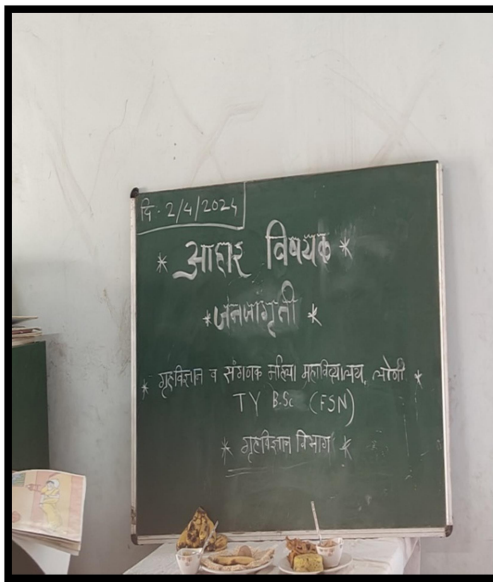 दि - 2/4/2024
* आहार विषयक *
* जनजागृती *
* गृहविज्ञान व संगणक महिला महाविद्यालय, लोणी *
TY B.Sc (FSN)
* गृहविज्ञान विभाग *